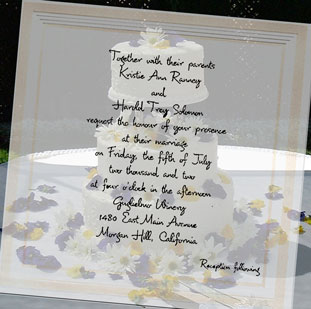 Together with their parents
Kristie Ann Ranney
and
Harold Trey Solomon
request the honour of your presence
at their marriage
on Friday, the fifth of July
two thousand and two
at four o'clock in the afternoon
Guglielmo Winery
1480 East Main Avenue
Morgan Hill, California
Reception following